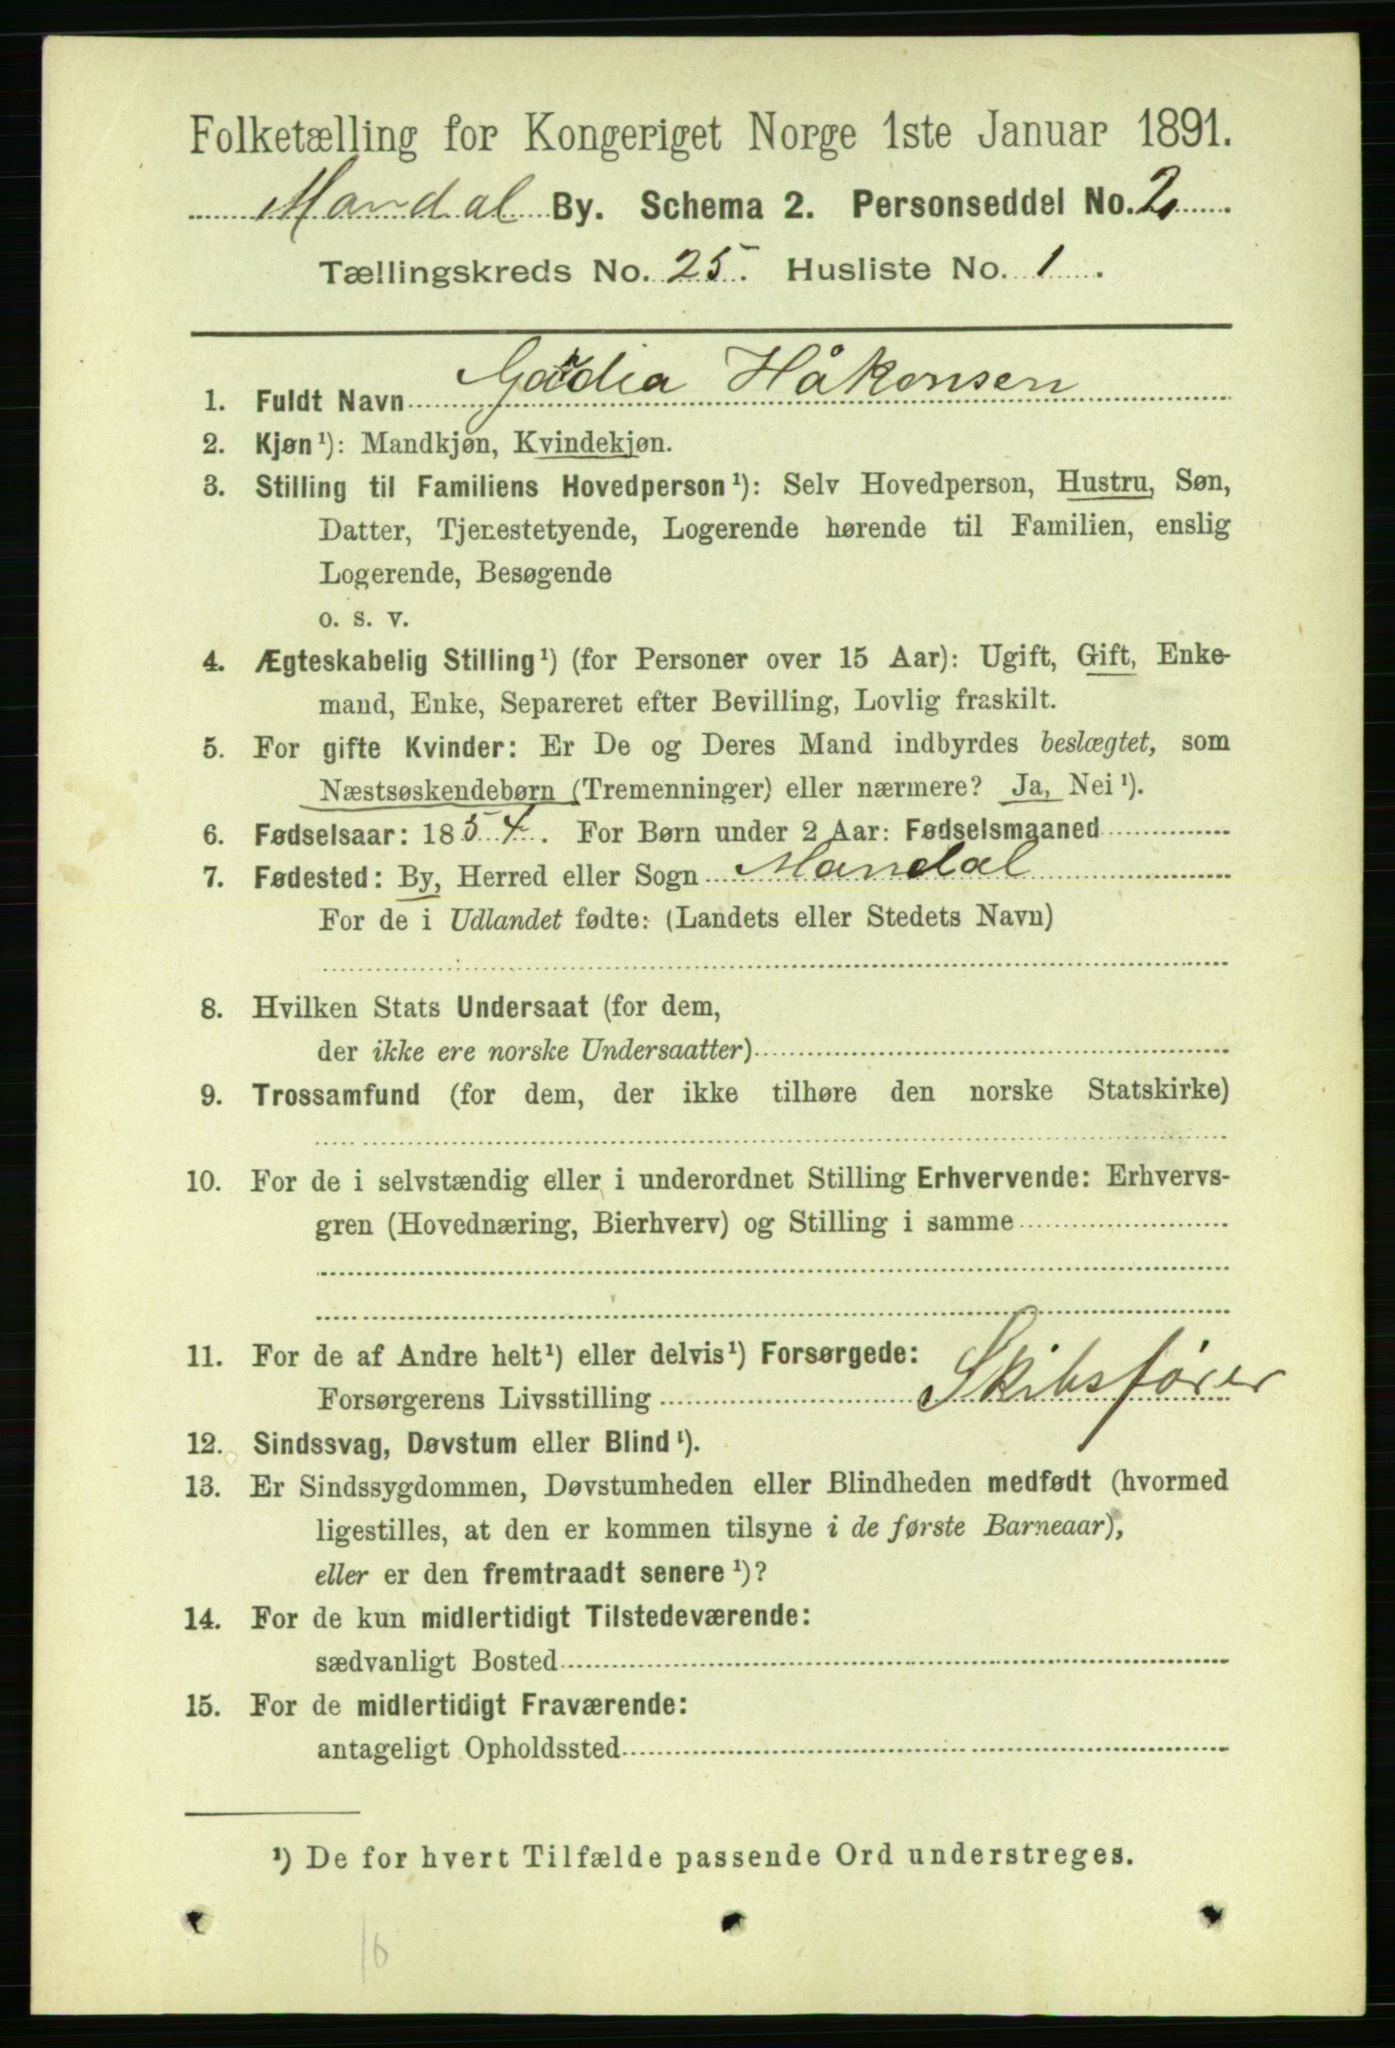 Folketælling for Kongeriget Norge 1ste Januar 1891.
Mandal By. Schema 2. Personseddel No. 2
Tællingskreds No. 25. Husliste No. 1.
1. Fuldt Navn Håkonsen
2. Kjøn¹): Mandkjøn, Kvindekjøn.
3. Stilling til Familiens Hovedperson¹): Selv Hovedperson, Hustru, Søn,
Datter, Tjenestetyende, Logerende hørende til Familien, enslig
Logerende, Besøgende
o. s. v.
4. Ægteskabelig Stilling¹) (for Personer over 15 Aar): Ugift, Gift, Enke-
mand, Enke, Separeret efter Bevilling, Lovlig fraskilt.
5. For gifte Kvinder: Er De og Deres Mand indbyrdes beslægtet, som
Næstsøskendebørn (Tremenninger) eller nærmere? Ja, Nei¹).
6. Fødselsaar: 1854. For Børn under 2 Aar: Fødselsmaaned
7. Fødested: By, Herred eller Sogn Mandal
For de i Udlandet fødte: (Landets eller Stedets Navn)
8. Hvilken Stats Undersaat (for dem,
der ikke ere norske Undersaatter)
9. Trossamfund (for dem, der ikke tilhøre den norske Statskirke)
10. For de i selvstændig eller i underordnet Stilling Erhvervende: Erhvervs-
gren (Hovednæring, Bierhverv) og Stilling i samme
11. For de af Andre helt¹) eller delvis¹) Forsørgede:
Forsørgerens Livsstilling Skibsfører
12. Sindssvag, Døvstum eller Blind¹).
13. Er Sindssygdommen, Døvstumheden eller Blindheden medfødt (hvormed
ligestilles, at den er kommen tilsyne i de første Barneaar),
eller er den fremtraadt senere¹)?
14. For de kun midlertidigt Tilstedeværende:
sædvanligt Bosted
15. For de midlertidigt Fraværende:
antageligt Opholdssted
¹) De for hvert Tilfælde passende Ord understreges.
16